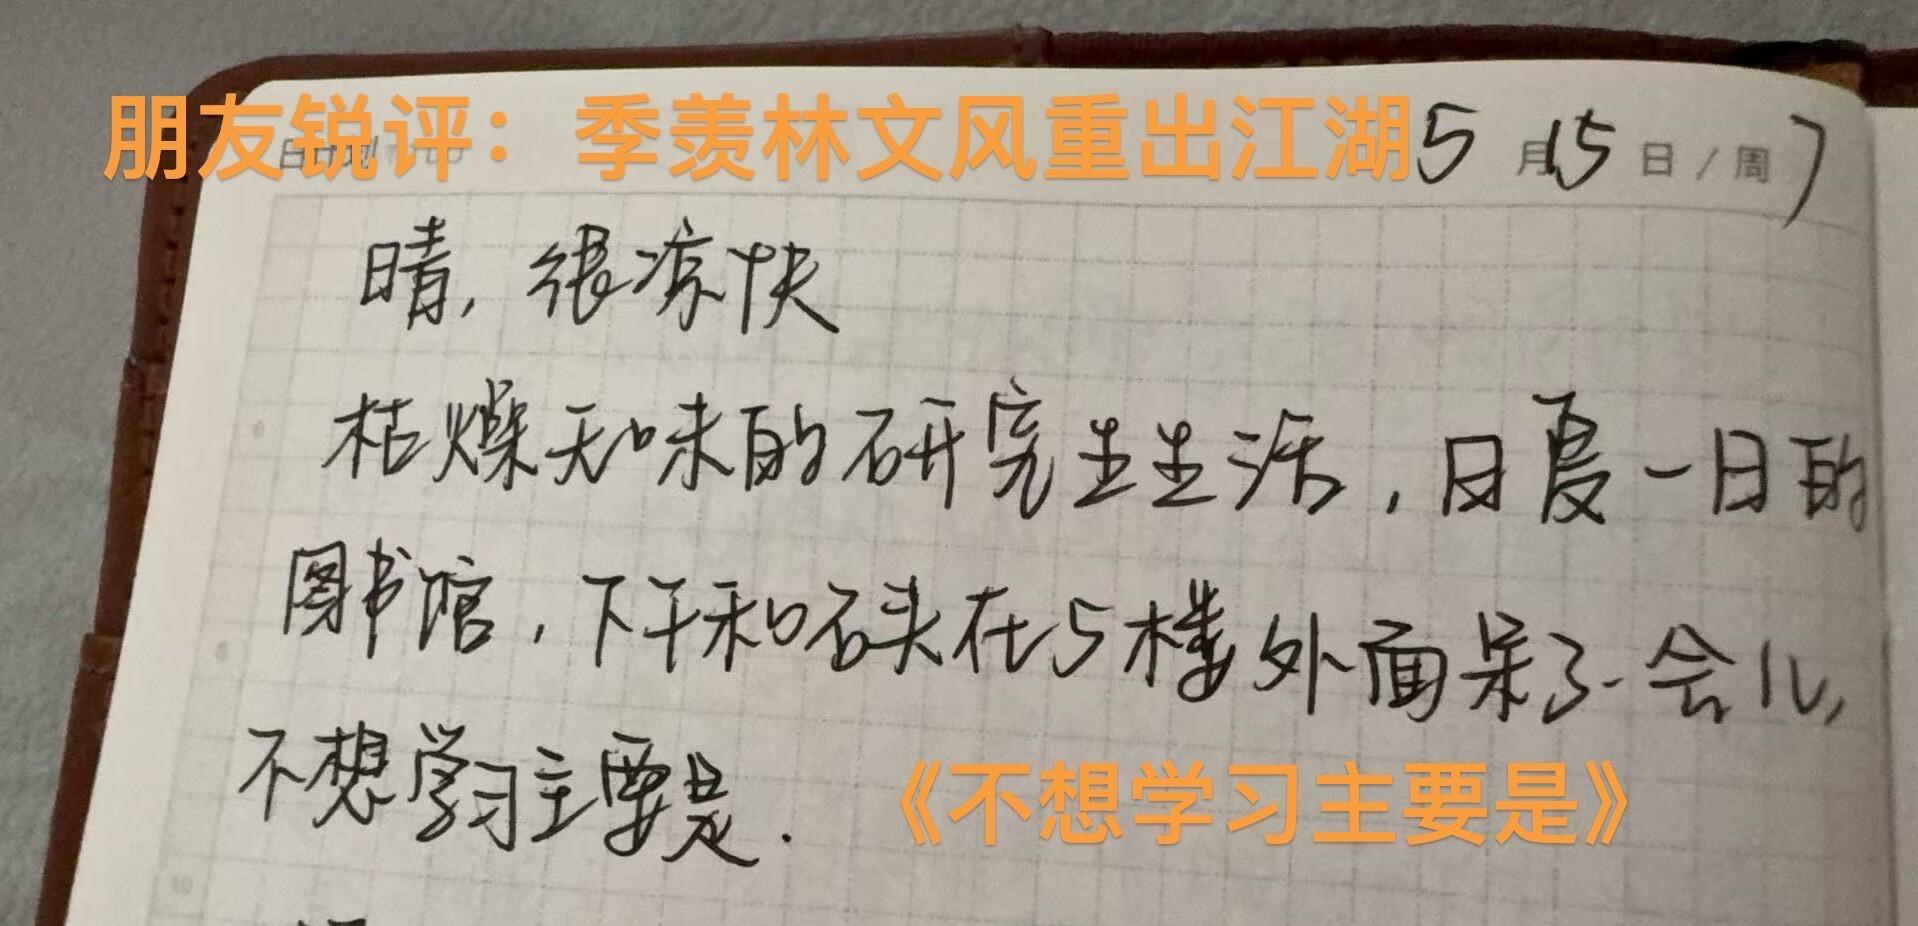 朋友锐评：季羡林文风重出江湖
5月15日/周7
晴，很凉快
枯燥无味的研究生生活，日复一日的
图书馆，下午和石头在5楼外面呆了一会儿，
不想学习主要是.
《不想学习主要是》
10